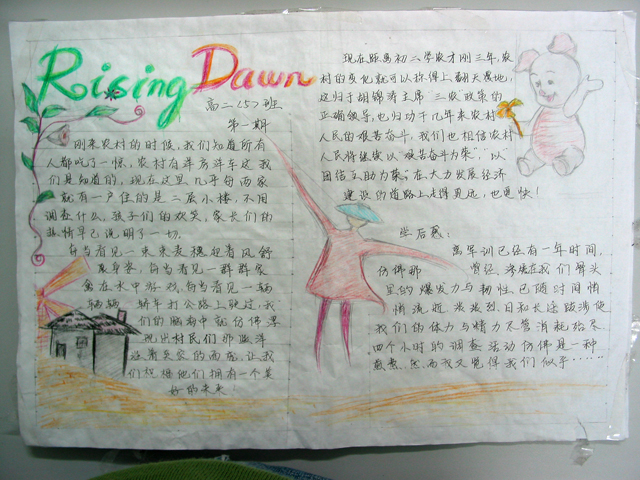 Rising Dawn
高二(5)班
第一期
刚来农村的时候,我们知道所有
人都吃了一惊,农村有洋房洋车这我
们是知道的,现在这里几乎每两家
就有一户住的是二层小楼,不用
调查什么,孩子们的欢笑,家长们的
热情早已说明了一切.
每当看见一束束麦穗起着风舒
展身姿,每当看见一群群家
禽在水中游戏,每当看见一辆
辆辆轿车打公路上驶过,我
们的脑海中就仿佛浮
现出村民们那
笑容的面庞,让我
们想想他们拥有一个美
好的未来
现在距离初二学农才刚三年,农
村的变化就可以称得上翻天覆地,
这归于胡锦涛主席三农政策的
正确领导,也归功于几年来农村
人民的艰苦奋斗,我们也相信农村
人民将继续以"艰苦奋斗为荣",以
团结互助为荣,在大力发展经济
建设的道路上走得更远,也更快!
学后感:
离军训已经有一年时间,
仿佛那
里的爆发力与韧性,已随时间悄
悄流逝,炎炎烈日和长途跋涉使
我们的体力与精力尽管消耗殆尽,
四个小时的调查活动仿佛是一种
煎熬.然而我又觉得我们似乎……